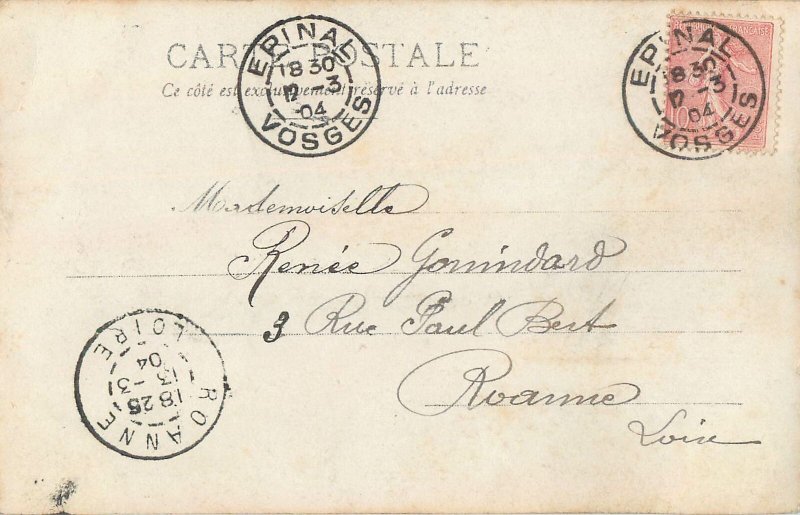 CARTE POSTALE
Ce côté est exclusivement réservé à l'adresse
EPINAL
18 30
12 -3
04
VOSGES
EPINAL
18 30
12 -3
04
VOSGES
Mademoiselle
Renée Gonindard
3 Rue Paul Bert
Roanne
Loire
ROANNE
18 25
13 -3
04
LOIRE